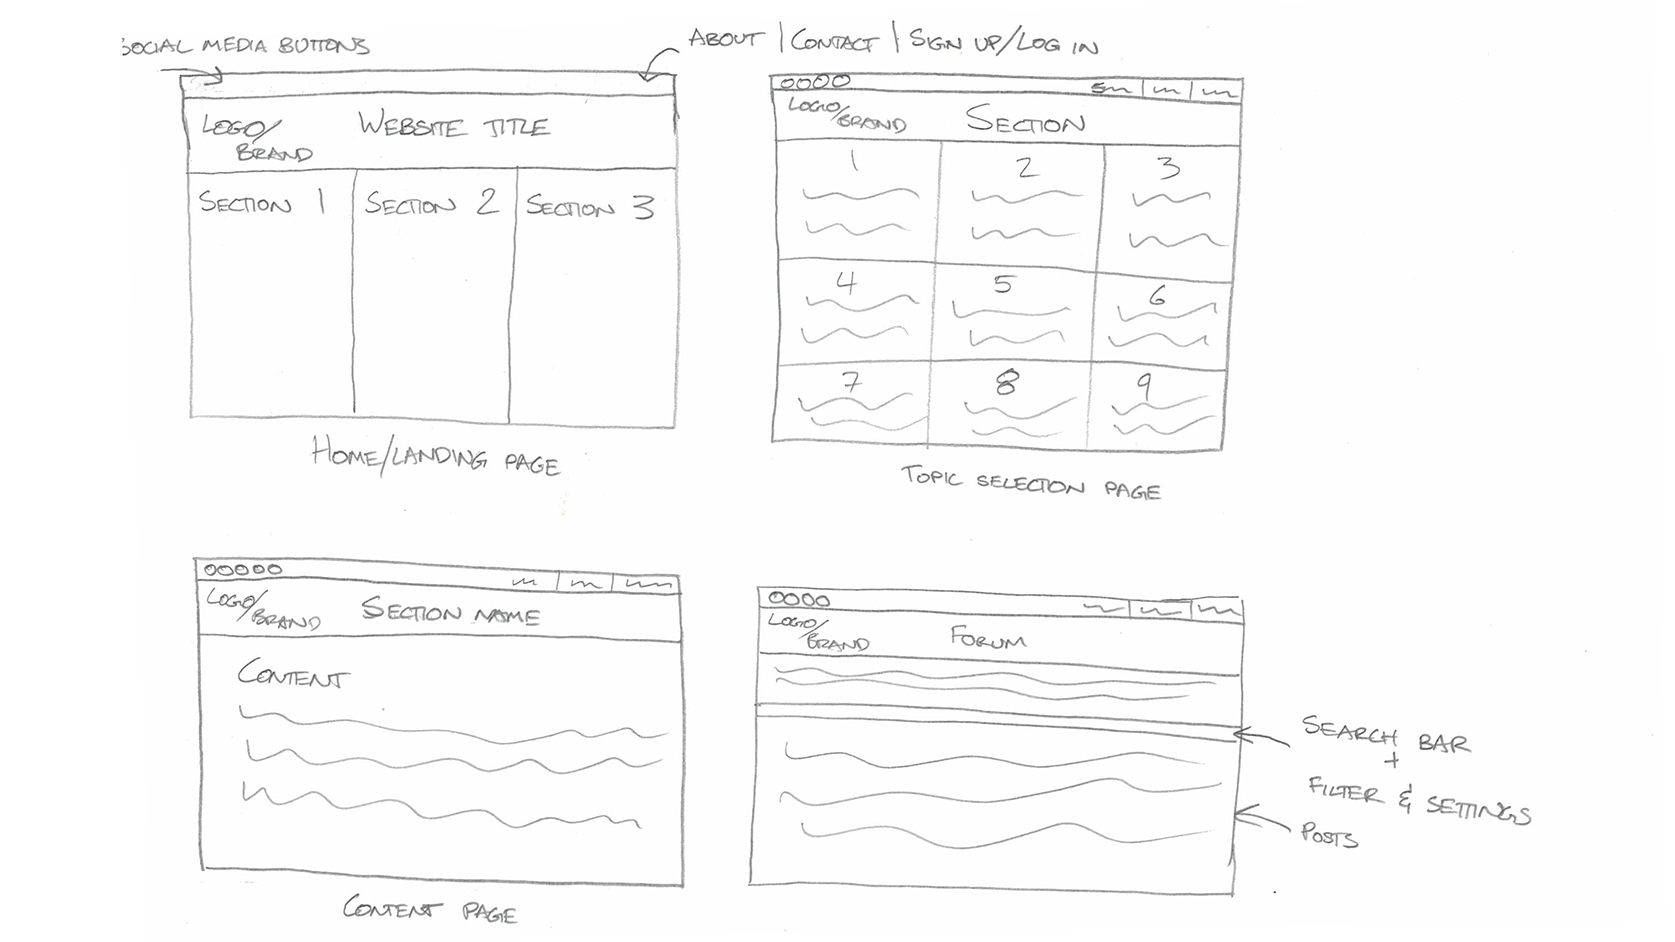 SOCIAL MEDIA BUTTONS
ABOUT | CONTACT | SIGN UP/LOG IN
LOGO/
BRAND
WEBSITE TITLE
SECTION 1
SECTION 2
SECTION 3
HOME/LANDING PAGE
LOGO/
BRAND
SECTION
1
2
3
4
5
6
7
8
9
TOPIC SELECTION PAGE
LOGO/
BRAND
SECTION NAME
CONTENT
CONTENT PAGE
LOGO/
BRAND
FORUM
SEARCH BAR
+
FILTER & SETTINGS
POSTS